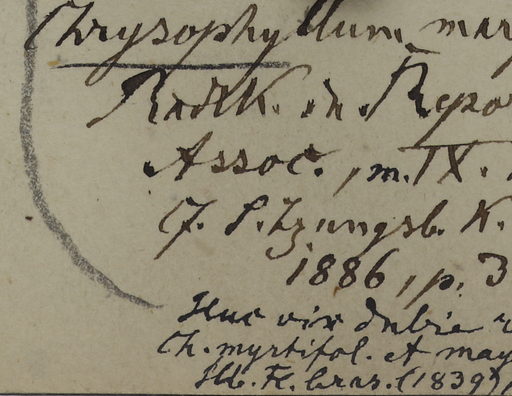 Chrysophyllum mar
Radlk. in Repo
Assoc., m. IX.
1886, p. 3
Huc vix dubie
Ch. myrtifol. et may
Hb. Fl. bras. (1839),